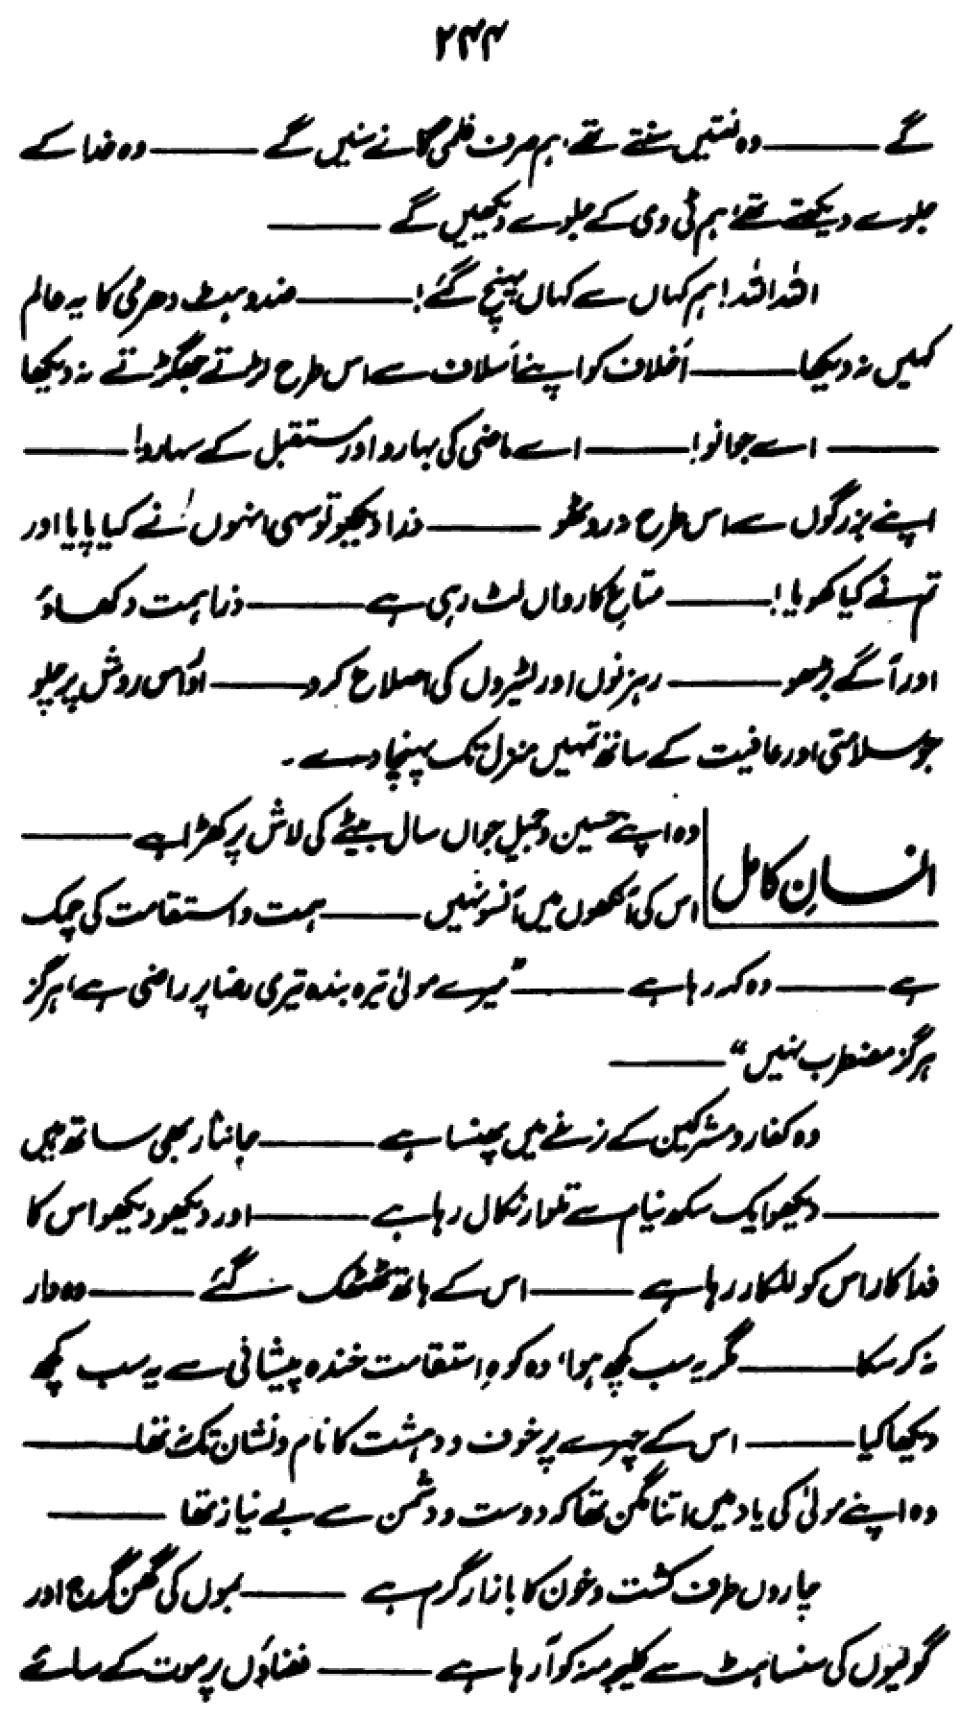 ۲۴۴
گے ——— وہ نعتیں سنتے تھے، ہم صرف فلمی گانے سنیں گے ——— وہ خدا کے
جلوے دیکھتے تھے، ہم ٹی وی کے جلوے دیکھیں گے ———
اللہ اللہ! ہم کہاں سے کہاں پہنچ گئے! ——— ضد و ہٹ دھرمی کا یہ عالم
کہیں نہ دیکھا ——— اَخلاف کو اپنے اَسلاف سے اس طرح لڑتے جھگڑتے نہ دیکھا
——— اے جوانو! ——— اے ماضی کی بہارو اور مستقبل کے سہارو! ———
اپنے بزرگوں سے اس طرح نہ روٹھو ——— ذرا دیکھو تو سہی انہوں نے کیا پایا اور
تم نے کیا کھویا! ——— متاعِ کارواں لٹ رہی ہے ——— ذرا ہمت دکھاؤ
اور آگے بڑھو ——— رہزنوں اور لٹیروں کی اصلاح کرو ——— اور اُس روش پر چلو
جو سلامتی اور عافیت کے ساتھ تمہیں منزل تک پہنچا دے۔
انسانِ کامل
وہ اپنے حسین و جمیل جواں سال بیٹے کی لاش پر کھڑا ہے ———
اس کی آنکھوں میں آنسو نہیں ——— ہمت و استقامت کی چمک
ہے ——— وہ کہہ رہا ہے ——— ”میرے مولیٰ تیرہ بندہ تیری رضا پر راضی ہے، ہرگز
ہرگز مضطرب نہیں“ ———
وہ کفار و مشرکین کے نرغے میں پھنسا ہے ——— جانثار بھی ساتھ ہیں
——— دیکھو ایک سکھ نیام سے تلوار نکال رہا ہے ——— اور دیکھو دیکھو اس کا
فداکار اس کو للکار رہا ہے ——— اس کے ہاتھ ٹھٹھک گئے ——— وہ وار
نہ کر سکا ——— مگر یہ سب کچھ ہوا، وہ کوہِ استقامت خندہ پیشانی سے یہ سب کچھ
دیکھا کیا ——— اس کے چہرے پر خوف و دہشت کا نام و نشان تک نہ تھا ———
وہ اپنے مولیٰ کی یاد میں اتنا مگن تھا کہ دوست و دشمن سے بے نیاز تھا ———
چاروں طرف کشت و خون کا بازار گرم ہے ——— بموں کی گھن گرج اور
گولیوں کی سنساہٹ سے کلیجہ منہ کو آ رہا ہے ——— فضاؤں پر موت کے سائے